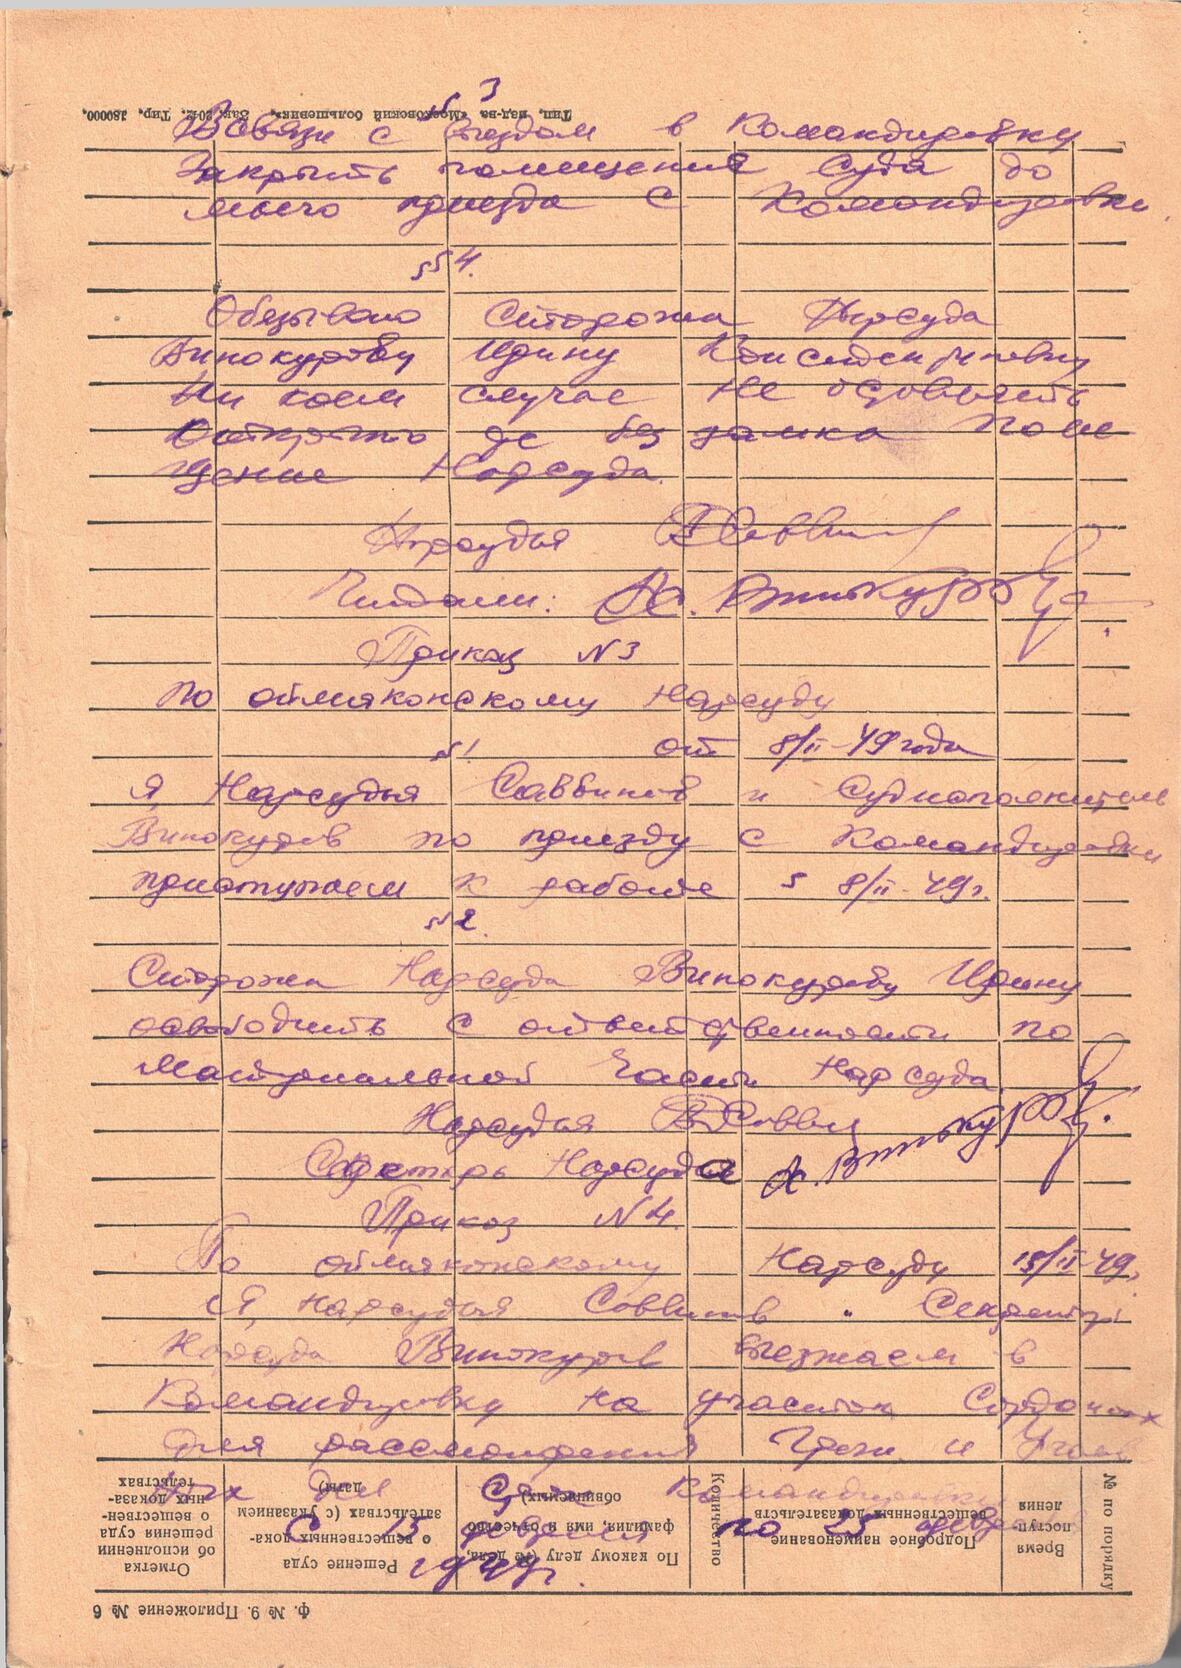 § 3
В связи с выездом в командировку
Закрыть помещение Суда до
моего приезда с Командировки.
§ 4.
Обязываю Сторожа Нарсуда
Винокурову Ирину Константиновну
Ни коем случае не
без замка Поме
щение Нарсуда.
Нарсудья Саввин
Читали: А. Винокуров
Приказ № 3
по оймяконскому Нарсуду
§ 1. от 8/II-49 года
Я Нарсудья Саввинов и Судисполнитель
Винокуров по приезду с Командировки
приступаем к работе с 8/II-49г.
§ 2.
Сторожа Нарсуда Винокурову Ирину
освободить с ответственности по
Материальной Части Нарсуда.
Нарсудья Саввин
Секретарь Нарсуда А. Винокуров.
Приказ № 4.
По оймяконскому Нарсуду 15/II-49г.
Я, нарсудья Саввинов и Секретарь
Нарсуда Винокуров выезжаем в
Командировку на участок
для рассмотрения Граж. и Уголов
ных дел Срок Командировки
С 15 февраля по 25 февраля
1949г.
Тип. изд-ва «Московский большевик». Зак. 2042. Тир. 180000.
№ по порядку
Время поступ-
ления
Подробное наименование
вещественных доказательств
Количество
По какому делу (№ дела,
фамилия, имя и отчество
обвиняемых)
Решение суда
о вещественных дока-
зательствах (с указанием
даты)
Отметка
об исполнении
решения суда
о веществен-
ных доказа-
тельствах
ф. № 9. Приложение № 6